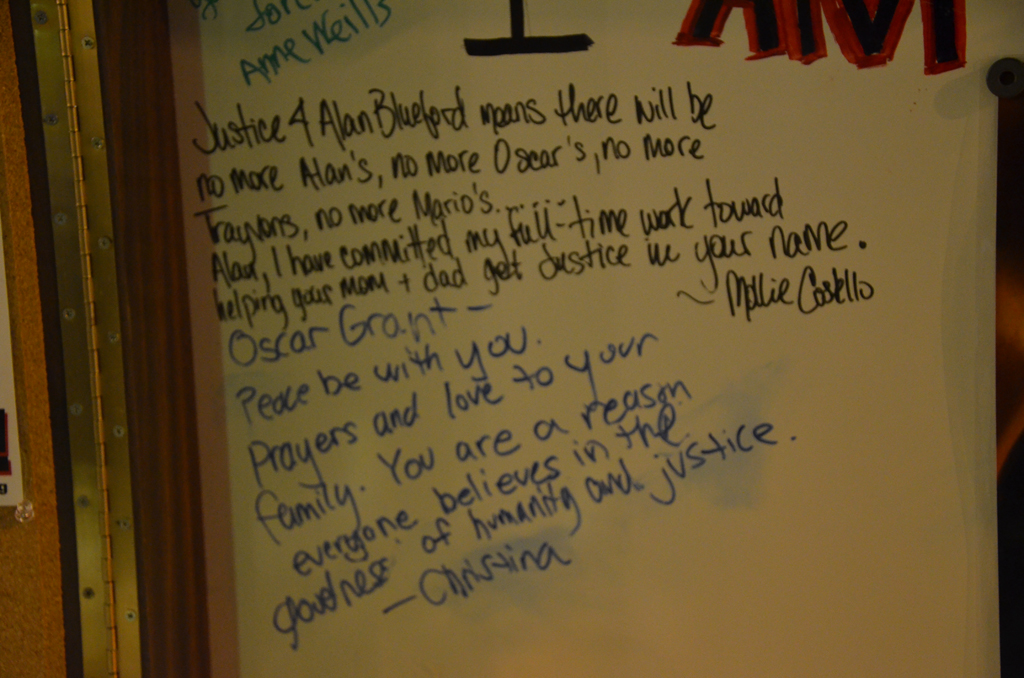 Anne Weills
I AM
Justice 4 Alan Blueford means there will be
no more Alan's, no more Oscar's, no more
Trayvons, no more Mario's......
Alan, I have committed my full-time work toward
helping your mom + dad get Justice in your name.
~ Mollie Costello
Oscar Grant -
Peace be with you.
Prayers and love to your
family. You are a reason
everyone believes in the
goodness of humanity and justice.
- Christina